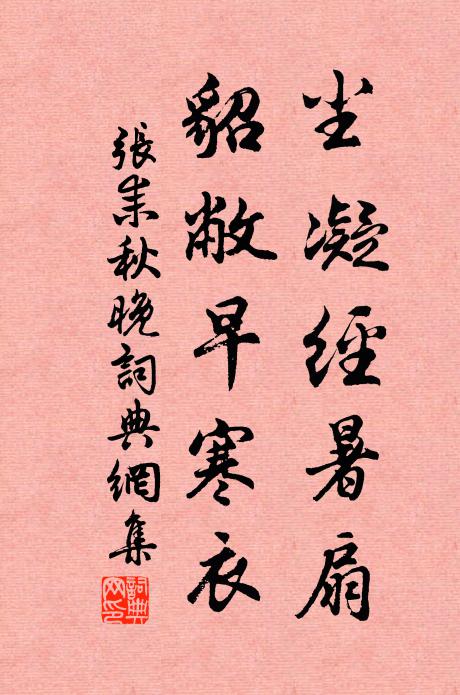 尘凝經暑扇
貂敝早寒衣
張耒秋晚詞典網集
詞典网印